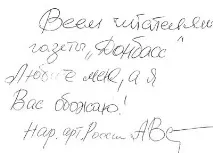 Всем читателям
газеты „Донбасс"
Любите меня, а я
Вас обожаю!
Нар. арт. России